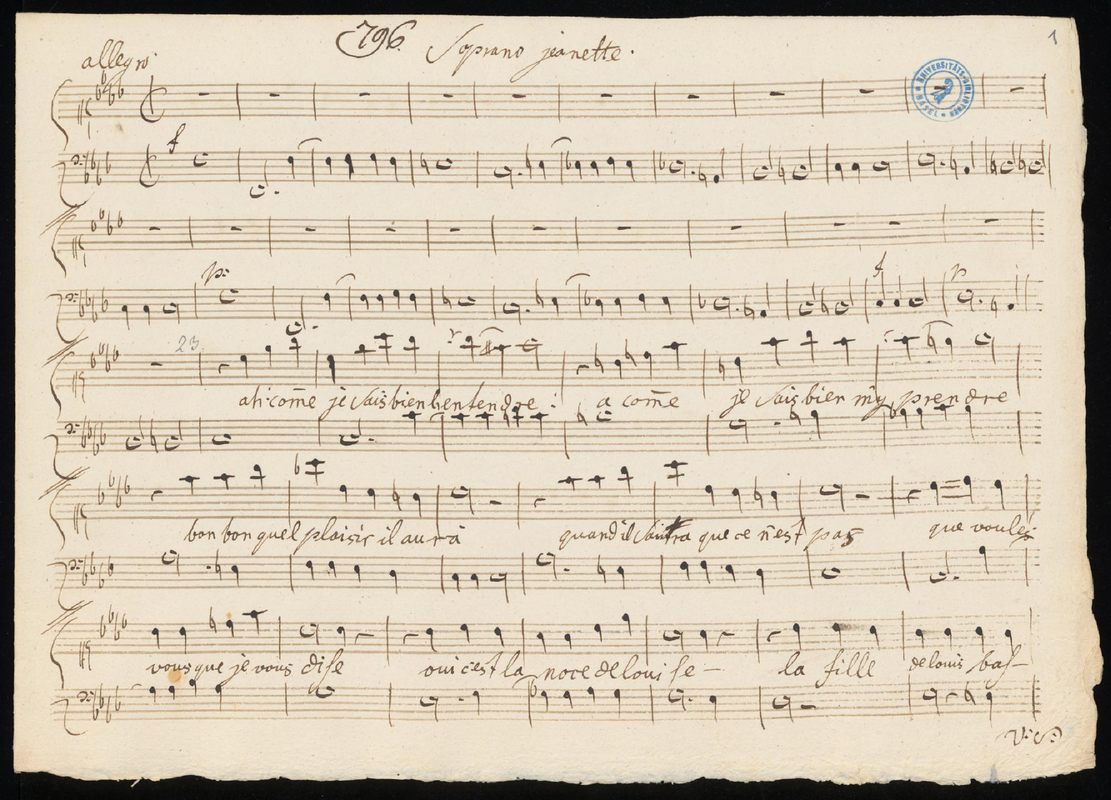 796. Soprano jeanette. 1
allegro
UNIVERSITÄTS-BIBLIOTHEK BASEL
f
p:
f p
23
ah com̄e je sais bien l'entendre : a com̄e je sais bien m'y prendre
bon bon quel plaisir il aura quand il que ce n'est pas que voules
vous que je vous dise oui c'est la noce de louise — la fille de louis bas—
V: S: